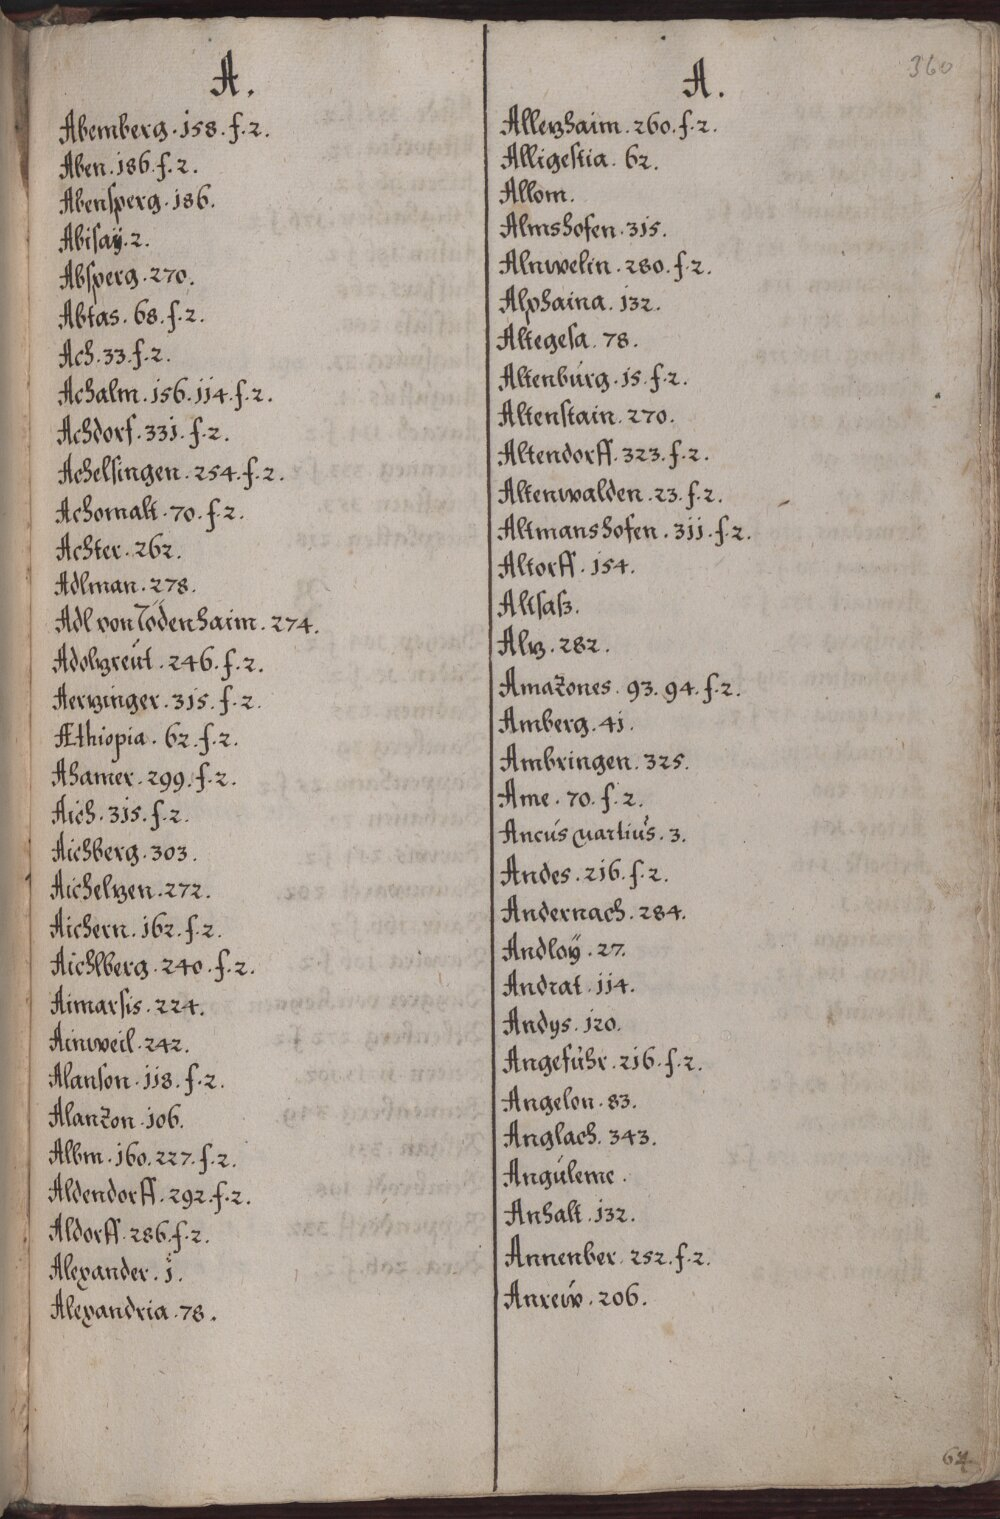 360
A.
Abemberg. 158. f. 2.
Aben. 186. f. 2.
Abensperg. 186.
Abisaÿ. 2.
Absperg. 270.
Abtas. 68. f. 2.
Ach. 33. f. 2.
Achalm. 156. 114. f. 2.
Achdorf. 331. f. 2.
Achelfingen. 254. f. 2.
Achomalt. 70. f. 2.
Achter. 262.
Adlman. 278.
Adl von Todenhaim. 274.
Adolzreút. 246. f. 2.
Aerzinger. 315. f. 2.
Æthiopia. 62. f. 2.
Ahamer. 299. f. 2.
Aich. 315. f. 2.
Aichberg. 303.
Aichelzen. 272.
Aichern. 162. f. 2.
Aichlberg. 240. f. 2.
Aimarsis. 224.
Ainweil. 242.
Alanson. 118. f. 2.
Alanzon. 106.
Albm. 160. 227. f. 2.
Aldendorff. 292. f. 2.
Aldorff. 286. f. 2.
Alexander. 1.
Alexandria. 78.
A.
Allerzhaim. 260. f. 2.
Alligestia. 62.
Allom.
Almshofen. 315.
Alnwelin. 280. f. 2.
Alphaina. 132.
Altegesa. 78.
Altenbúrg. 15. f. 2.
Altenstain. 270.
Altendorff. 323. f. 2.
Altenwalden. 23. f. 2.
Altmanshofen. 311. f. 2.
Altorff. 154.
Altsaß.
Alz. 282.
Amazones. 93. 94. f. 2.
Amberg. 41.
Ambringen. 325.
Ame. 70. f. 2.
Ancús Martiús. 3.
Andes. 216. f. 2.
Andernach. 284.
Andloÿ. 27.
Andrat. 114.
Andys. 120.
Angefúhr. 216. f. 2.
Angelon. 83.
Anglach. 343.
Angúleme.
Anhalt. 132.
Annenber. 252. f. 2.
Anreiw. 206.